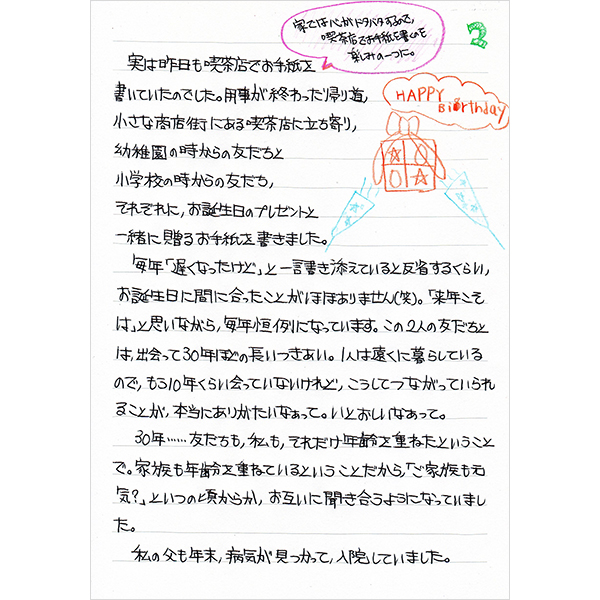 家では心がドタバタするので、
喫茶店でお手紙を書くのを
楽しみの一つに。
2
実は昨日も喫茶店でお手紙を
書いていたのでした。用事が終わった帰り道、
小さな商店街にある喫茶店に立ち寄り、
幼稚園の時からの友だちと
小学校の時からの友だち、
それぞれに、お誕生日のプレゼントと
一緒に贈るお手紙を書きました。
HAPPY
Biorthday
毎年「遅くなったけど」と一言書き添えていると反省するくらい、
お誕生日に間に合ったことがほぼありません(笑)。「来年こそ
は」と思いながら、毎年恒例になっています。この2人の友だちと
は、出会って30年ほどの長いつきあい。1人は遠くに暮らしている
ので、もう10年くらい会っていないけれど、こうしてつながっていられ
ることが、本当にありがたいなぁって。いとおしいなぁって。
30年……友だちも、私も、それだけ年齢を重ねたということ
で。家族も年齢を重ねているということだから、「ご家族も元
気?」といつの頃からか、お互いに聞き合うようになっていまし
た。
私の父も年末、病気が見つかって、入院していました。